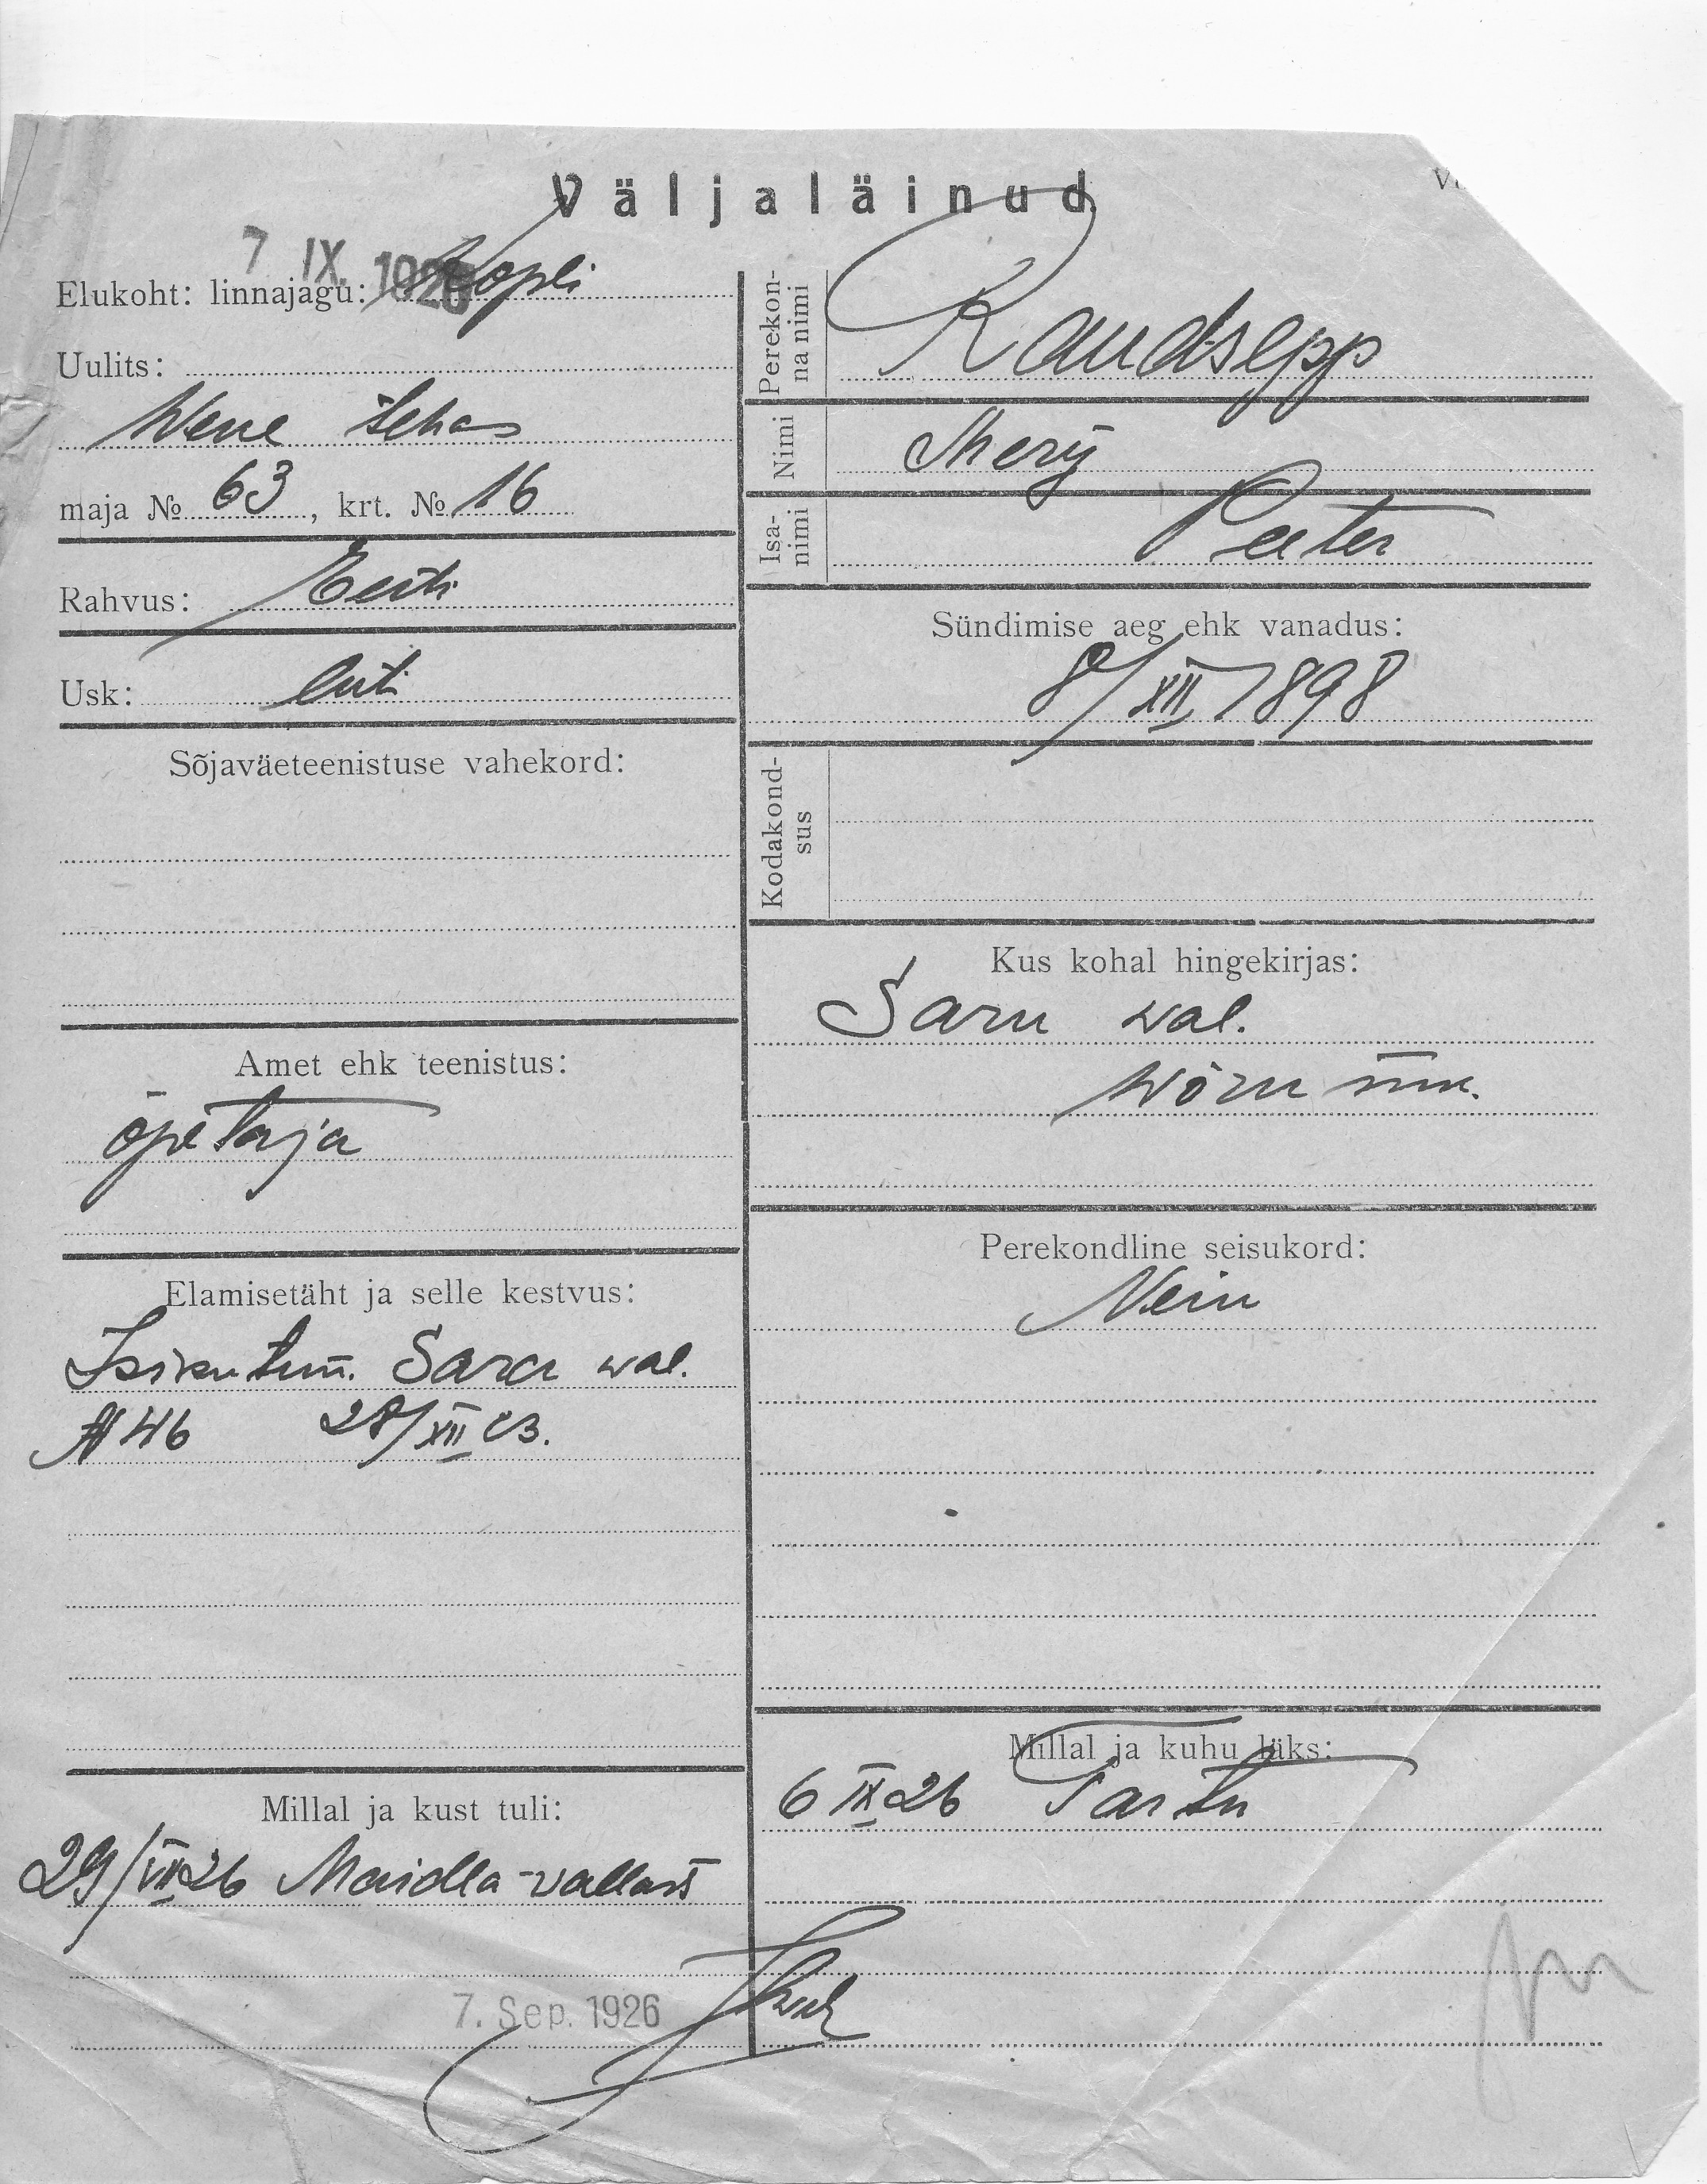 Väljaläinud.
7 IX. 1926
Elukoht: linnajagu: Kopli
Uulits:
Wene tehas
maja № 63, krt. № 16
Rahvus: Eesti
Usk: luti
Sõjaväeteenistuse vahekord:
Amet ehk teenistus:
õpetaja
Elamisetäht ja selle kestvus:
Isikutun. Saru wal.
№ 46 28/XII 23.
Millal ja kust tuli:
29/VII 26 Maidla-vallast
7. Sep. 1926
Perekonna nimi
Raudsepp
Nimi
Mery
Isanimi
Peeter
Sündimise aeg ehk vanadus:
8/XII 1898
Kodakondsus
Kus kohal hingekirjas:
Saru wal.
Wõru mm.
Perekondline seisukord:
Nein
Millal ja kuhu läks:
6 IX 26 Tartu